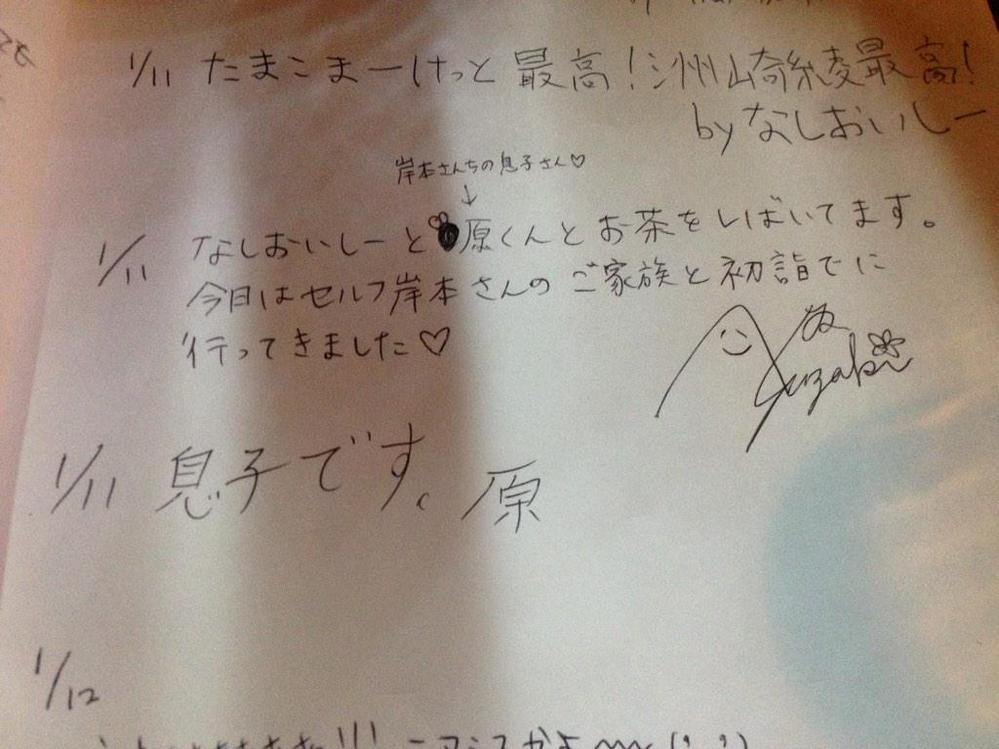 1/11 たまこまーけっと 最高!洲崎綾最高!
by なしおいしー
岸本さんちの息子さん♡
↓
1/11 なしおいしーと原くんとお茶をしばいてます。
今日はセルフ岸本さんのご家族と初詣でに
行ってきました♡
Suzaki
1/11 息子です。原
1/12